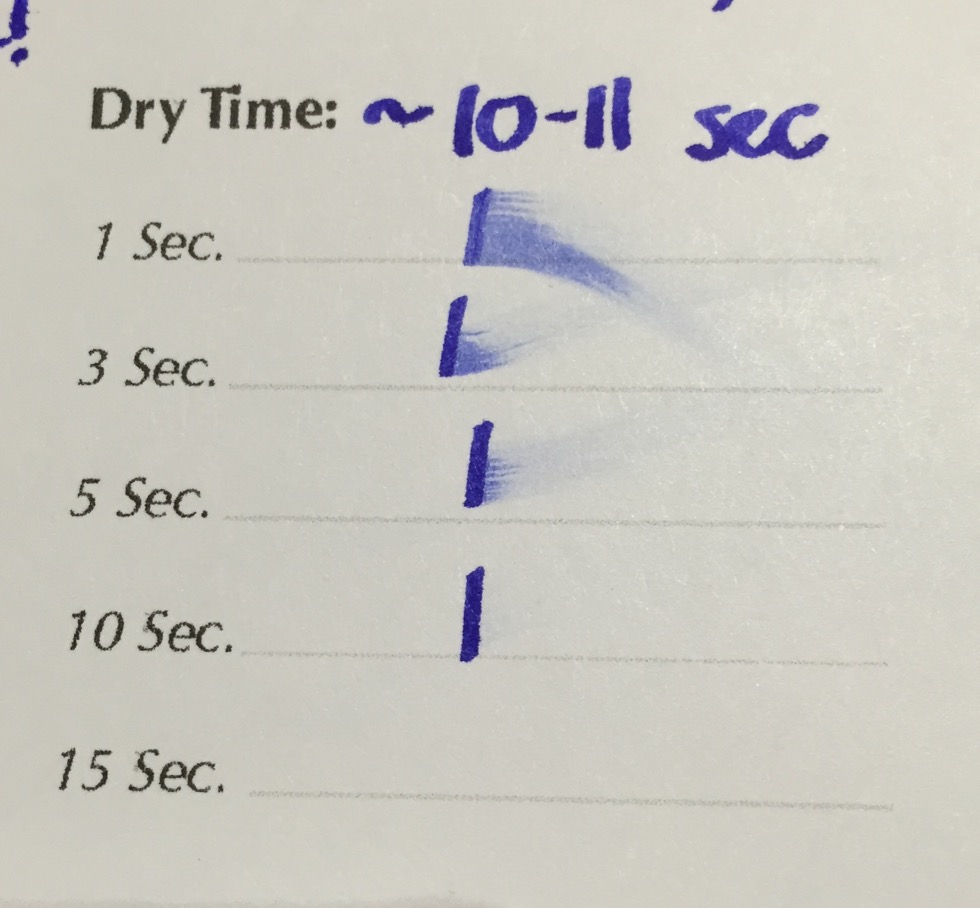 Dry Time: ~ 10-11 sec
1 Sec.
3 Sec.
5 Sec.
10 Sec.
15 Sec.